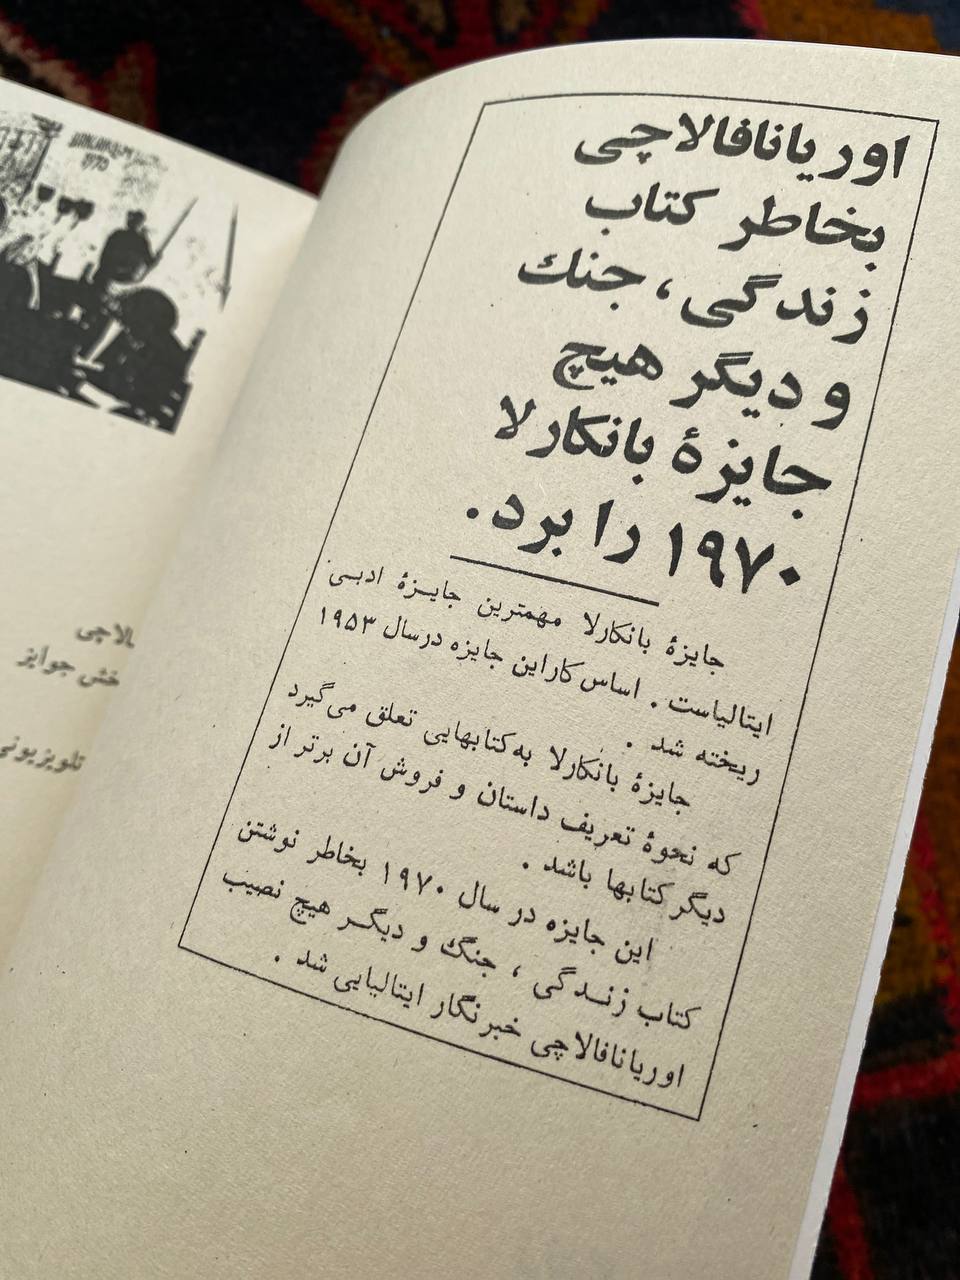 اوریانافالاچی
بخاطر کتاب
زندگی، جنك
و دیگر هیچ
جایزهٔ بانکارلا
۱۹۷۰ را برد.
جایزهٔ بانکارلا مهمترین جایـزهٔ ادبـی
ایتالیاست . اساس کاراین جایزه درسال ۱۹۵۳
ریخته شد .
جایزهٔ بانکارلا به‌کتابهایی تعلق می‌گیرد
که نحوهٔ تعریف داستان و فروش آن برتر از
دیگر کتابها باشد .
این جایزه در سال ۱۹۷۰ بخاطر نوشتن
کتاب زنـدگی ، جنگ و دیگـر هیچ نصیب
اوریانافالاچی خبرنگار ایتالیایی شد .
جوایز
تلویزیونی